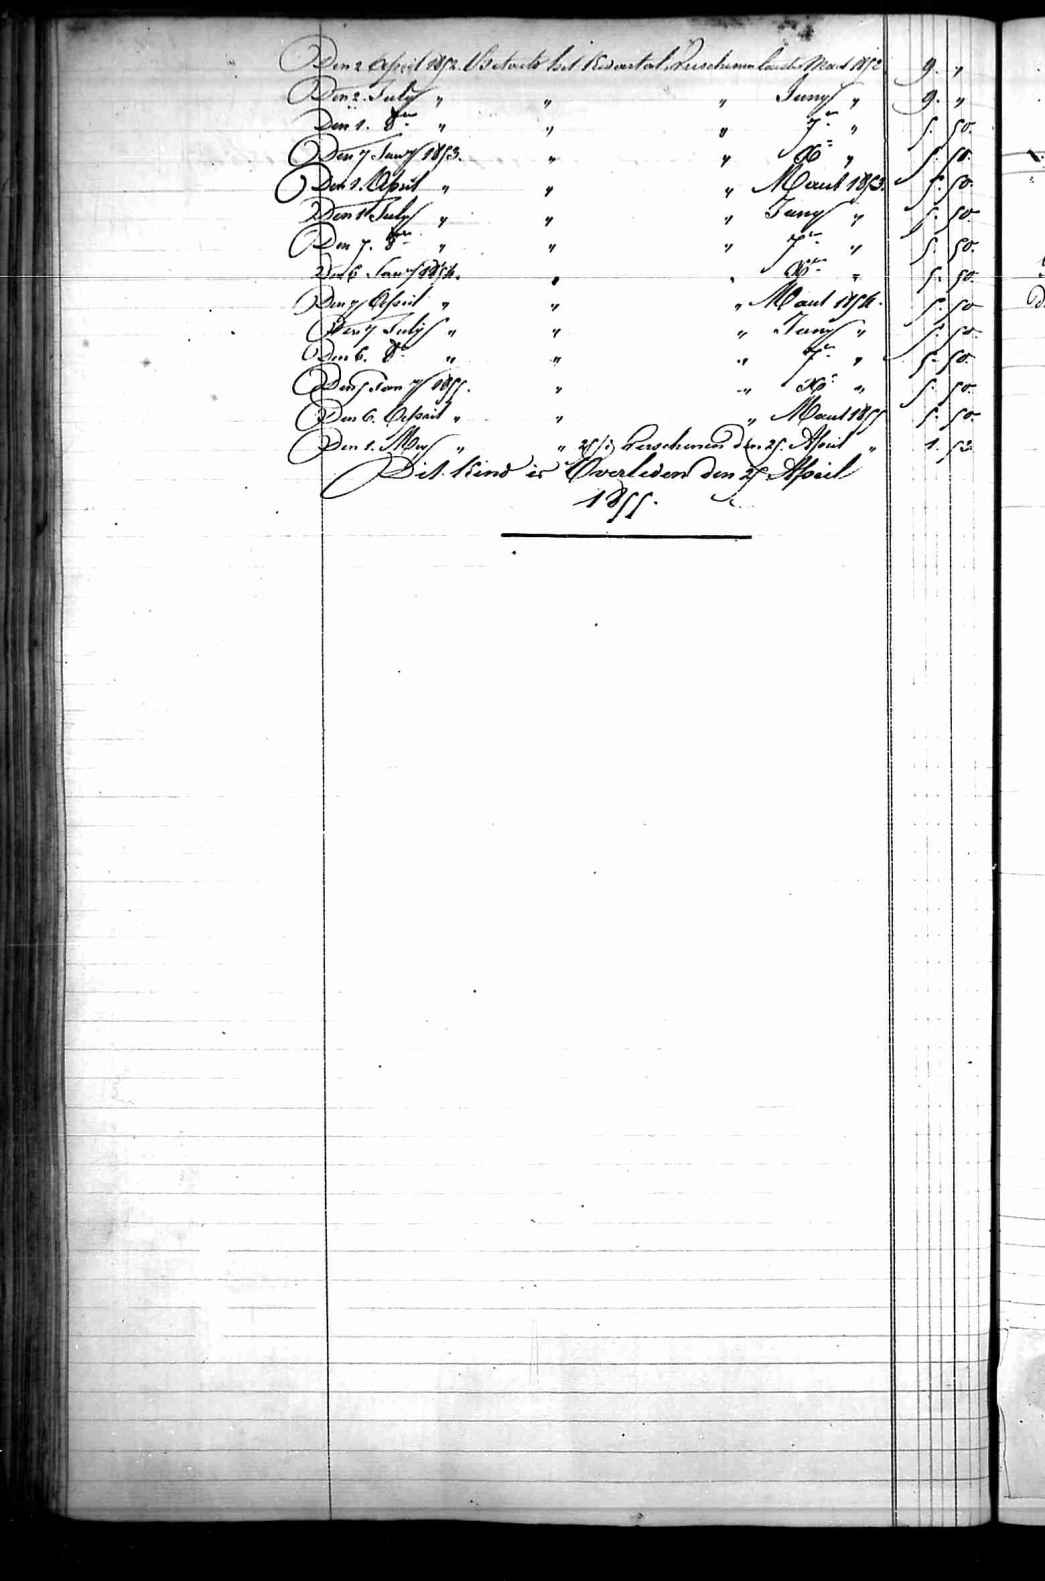 Den 2 April 1852. Betaelt het Kwartal Verschenen laatst Maart 1852 9. "
Den 2. July " " " Juny " 9. "
Den 1. 8er " " " 7er " 5. 50.
Den 7 Jany 1853. " " Xr " 5. 50.
Den 1. April " " " Maart 1853. 5. 50.
Den 1 July " " " Juny " 5. 50.
Den 7. 8er " " " 7er " 5. 50.
Den 6 Jany 1854. " " Xer " 5. 50.
Den 7 April " " " Maart 1854. 5. 50
Den 7 July " " " Juny " 5. 50.
Den 6. 8r " " " 7er " 5. 50.
Den 5 Jany 1855. " " Xr " 5. 50.
Den 6. April " " " Maart 1855 5. 50.
Den 1. Mey " " 25 Verschenen den 25. April " 1. 53.
Dit Kind is Overleden den 25 April
1855.